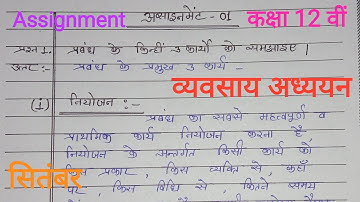 Assignment
असाइनमेंट - 01
कक्षा 12 वीं
प्रश्न 1. प्रबंध के किन्हीं 3 कार्यों को समझाइए।
उत्तर :- प्रबंध के प्रमुख 3 कार्य -
व्यवसाय अध्ययन
(i) नियोजन :-
प्रबंध का सबसे महत्वपूर्ण व
प्राथमिक कार्य नियोजन करना है,
नियोजन के अन्तर्गत किसी कार्य को
किस प्रकार, किस व्यक्ति से, कहाँ
सितंबर
पर, किस विधि से, कितने समय